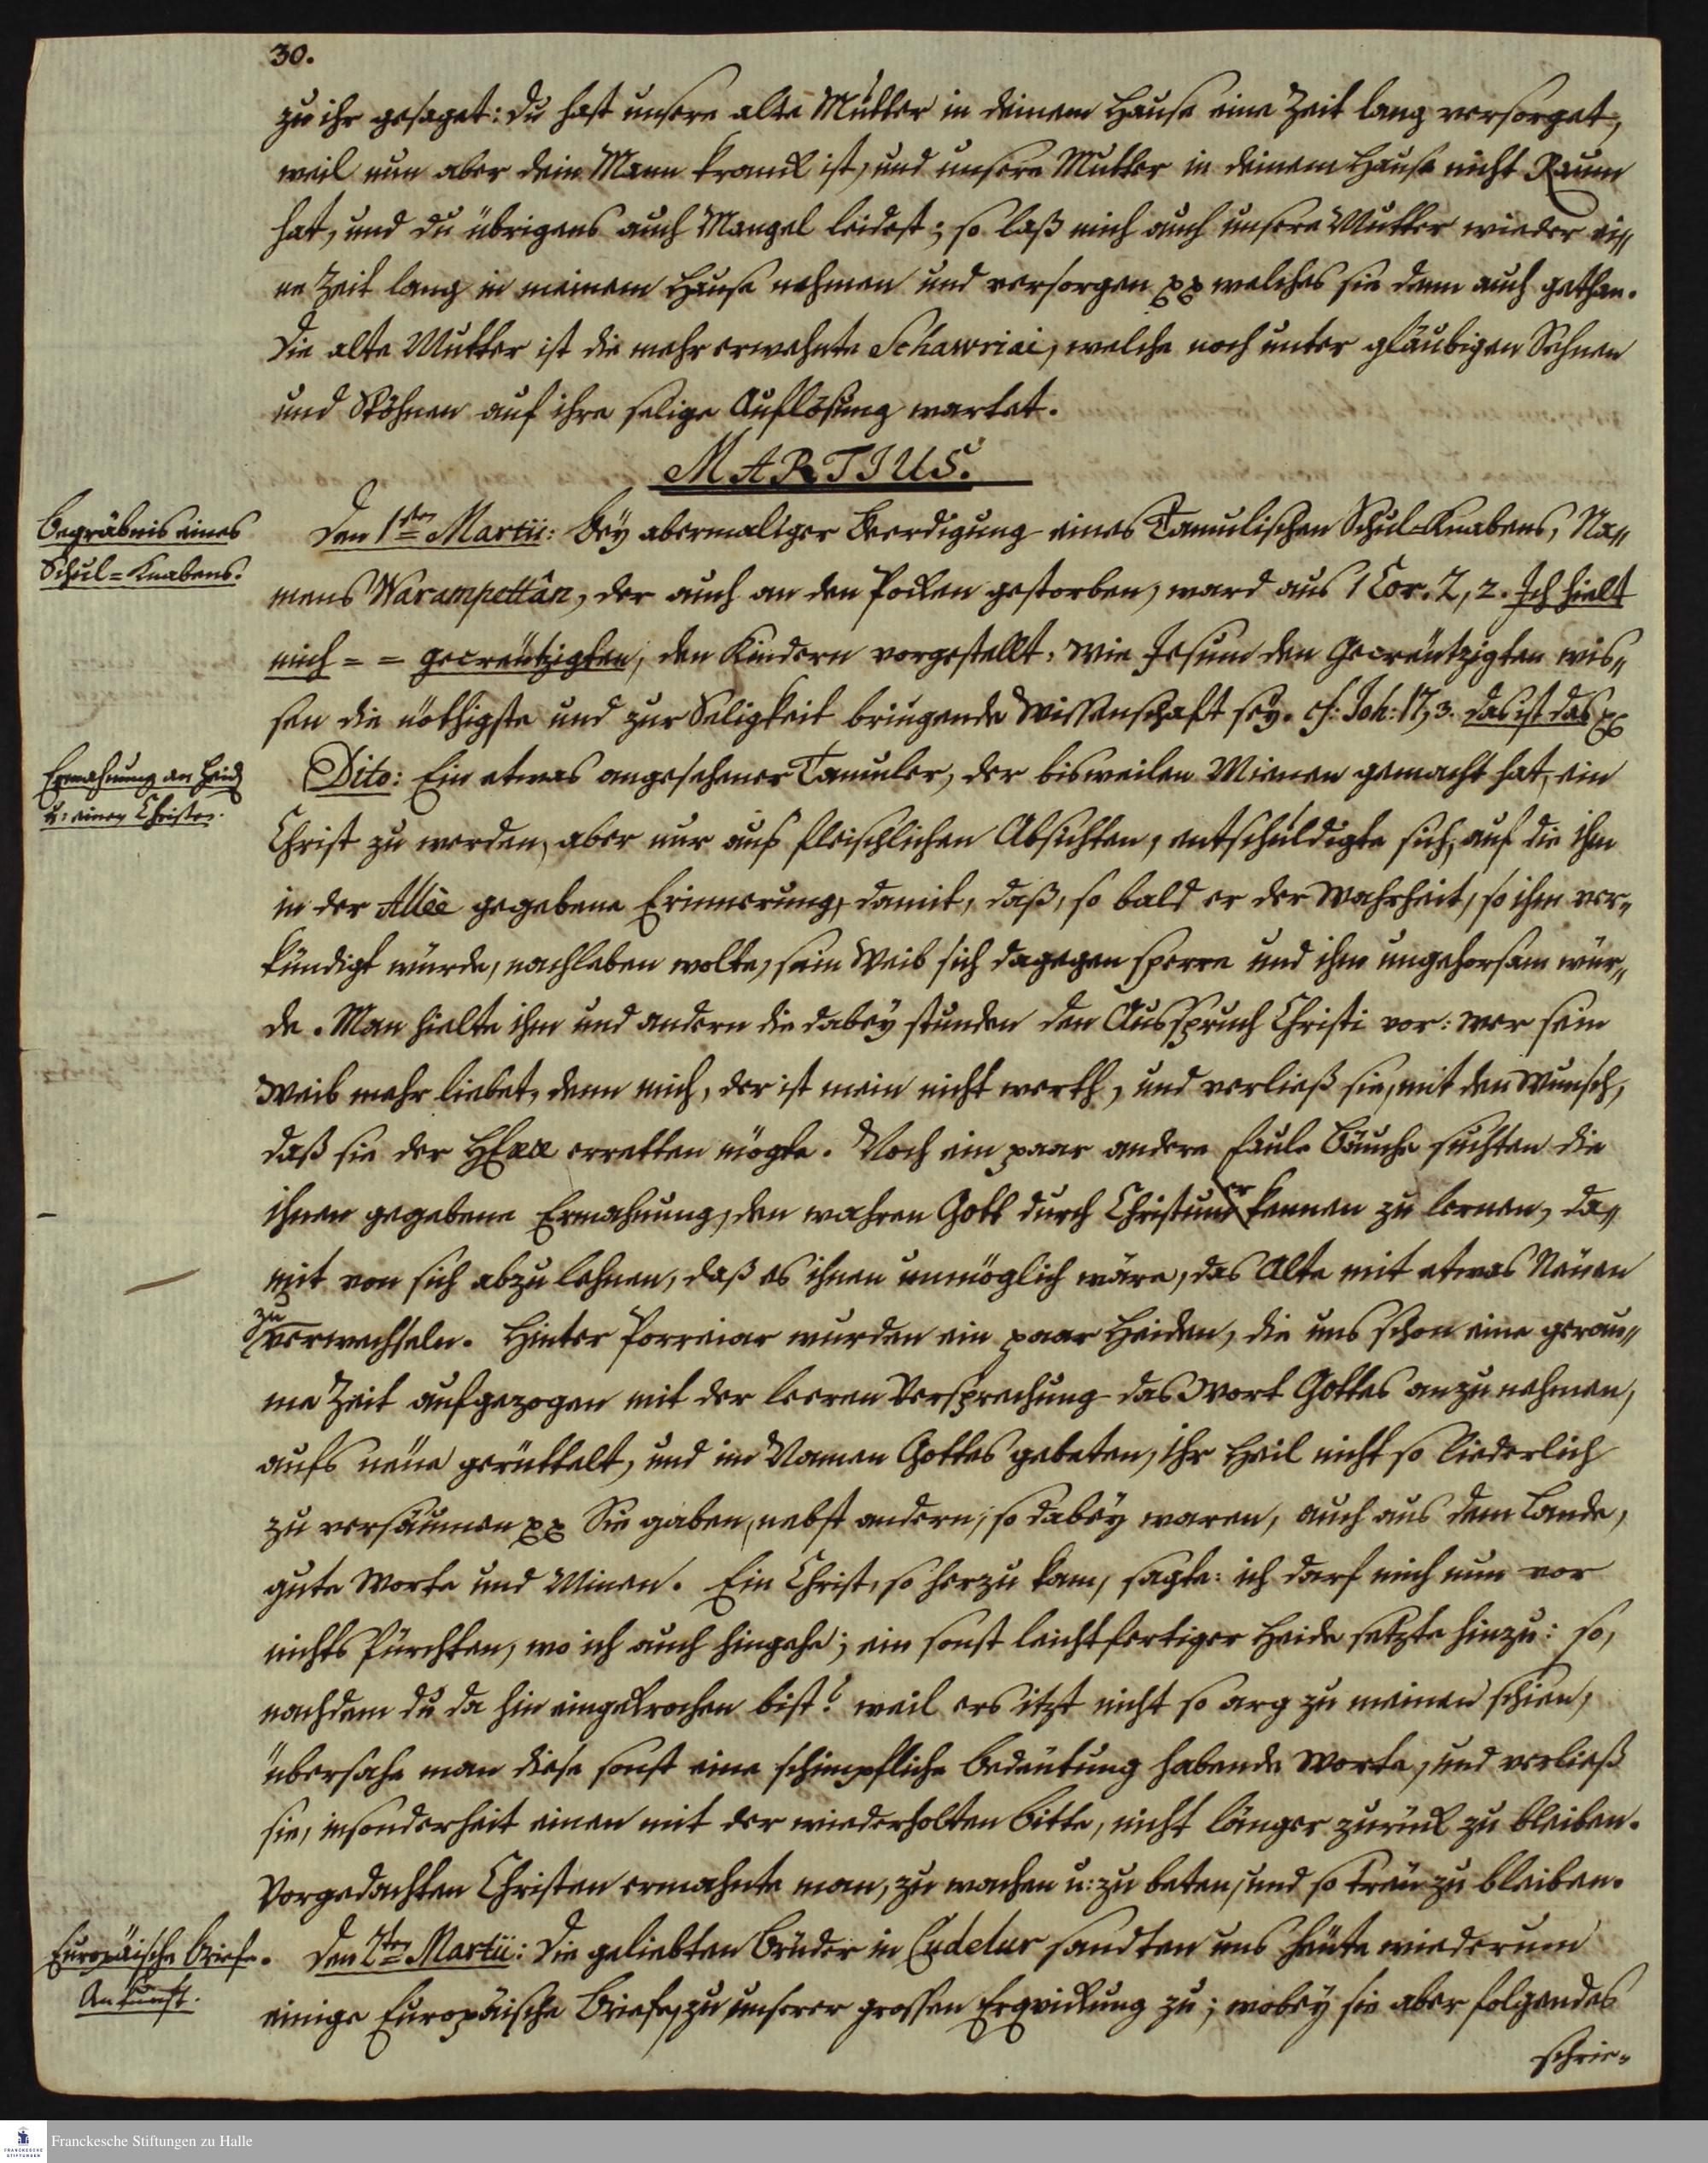 30.
zu ihr gesaget: du hast unsere alte Mutter in deinem Hause eine Zeit lang versorget,
weil nun aber dein Mann kranck ist, und unsere Mutter in deinem Hause nicht Raum
hat, und du übrigens auch Mangel leidest; so laß mich auch unsere Mutter wieder ei„
ne Zeit lang in meinem Hause nehmen und versorgen pp welches sie denn auch gethan.
Die alte Mutter ist die mehr erwehnte Schawriai, welche noch unter gläubigen Sehnen
und Stöhnen auf ihre selige Auflösung wartet.
MARTIUS.
Begräbnis eines
Schul=Knabens.
Den 1sten Martii: Bey abermaliger Beerdigung eines Tamulischen Schul-Knabens, Na„
mens Warampettân, der auch an den Pocken gestorben, ward aus 1 Cor. 2, 2. Ich hielt
mich = = gecreutzigten, den Kindern vorgestellt, wie Jesum den Gecreutzigten wis„
sen die nöthigste und zur Seligkeit bringende Wissenschaft sey. cf. Joh: 17, 3. das ist das pp
Ermahnung an Heid
u: einen Christen.
Dito: Ein etwas angesehener Tamuler, der bisweilen Mienen gemacht hat, ein
Christ zu werden, aber nur aus fleischlichen Absichten, entschuldigte sich, auf die ihm
in der Allèe gegebene Erinnerung, damit, daß, so bald er der Wahrheit, so ihm ver„
kündigt würde, nachleben wolte, sein Weib sich dagegen sperre und ihm ungehorsam wür„
de. Man hielte ihm und andern die dabey stunden den Ausspruch Christi vor: wer sein
Weib mehr liebet, denn mich, der ist mein nicht werth, und verließ sie, mit den Wunsch,
daß sie der HErr erretten mögte. Noch ein paar andere faule Bäuche suchten die
ihnen gegebene Ermahnung, den wahren Gott durch Christum erkennen zu lernen, da„
mit von sich abzulehnen, daß es ihnen unmöglich wäre, das Alte mit etwas Neuen
zu verwechseln. Hinter Porreiar wurden ein paar Heiden, die uns schon eine gerau„
me Zeit aufgezogen mit der leeren Versprechung das Wort Gottes anzunehmen,
aufs neue gerüttelt, und im Namen Gottes gebeten, ihr Heil nicht so liederlich
zu versäumen pp Sie gaben, nebst andern, so dabey waren, auch aus dem Lande,
gute Worte und Minen. Ein Christ, so herzu kam, sagte: ich darf mich nun vor
nichts fürchten, wo ich auch hingehe; ein sonst leichtfertiger Heide setzte hinzu: so,
nachdem du da hin eingekrochen bist? weil ers itzt nicht so arg zu meinen schien,
übersahe man diese sonst eine schimpfliche Bedeutung habende Worte, und verließ
sie, insonderheit einen mit der wiederholten Bitte, nicht länger zurück zu bleiben.
Vorgedachten Christen ermahnte man, zu wachen u: zu beten, und so treu zu bleiben.
Europäische Briefe.
Ankunft.
Den 2ten Martii: Die geliebten Brüder in Cudelur sandten uns heute wiederum
einige Europäische Briefe, zu unserer grossen Erqvickung zu; wobey sie aber folgendes
schrie=
FRANCKESCHE STIFTUNGEN
Franckesche Stiftungen zu Halle